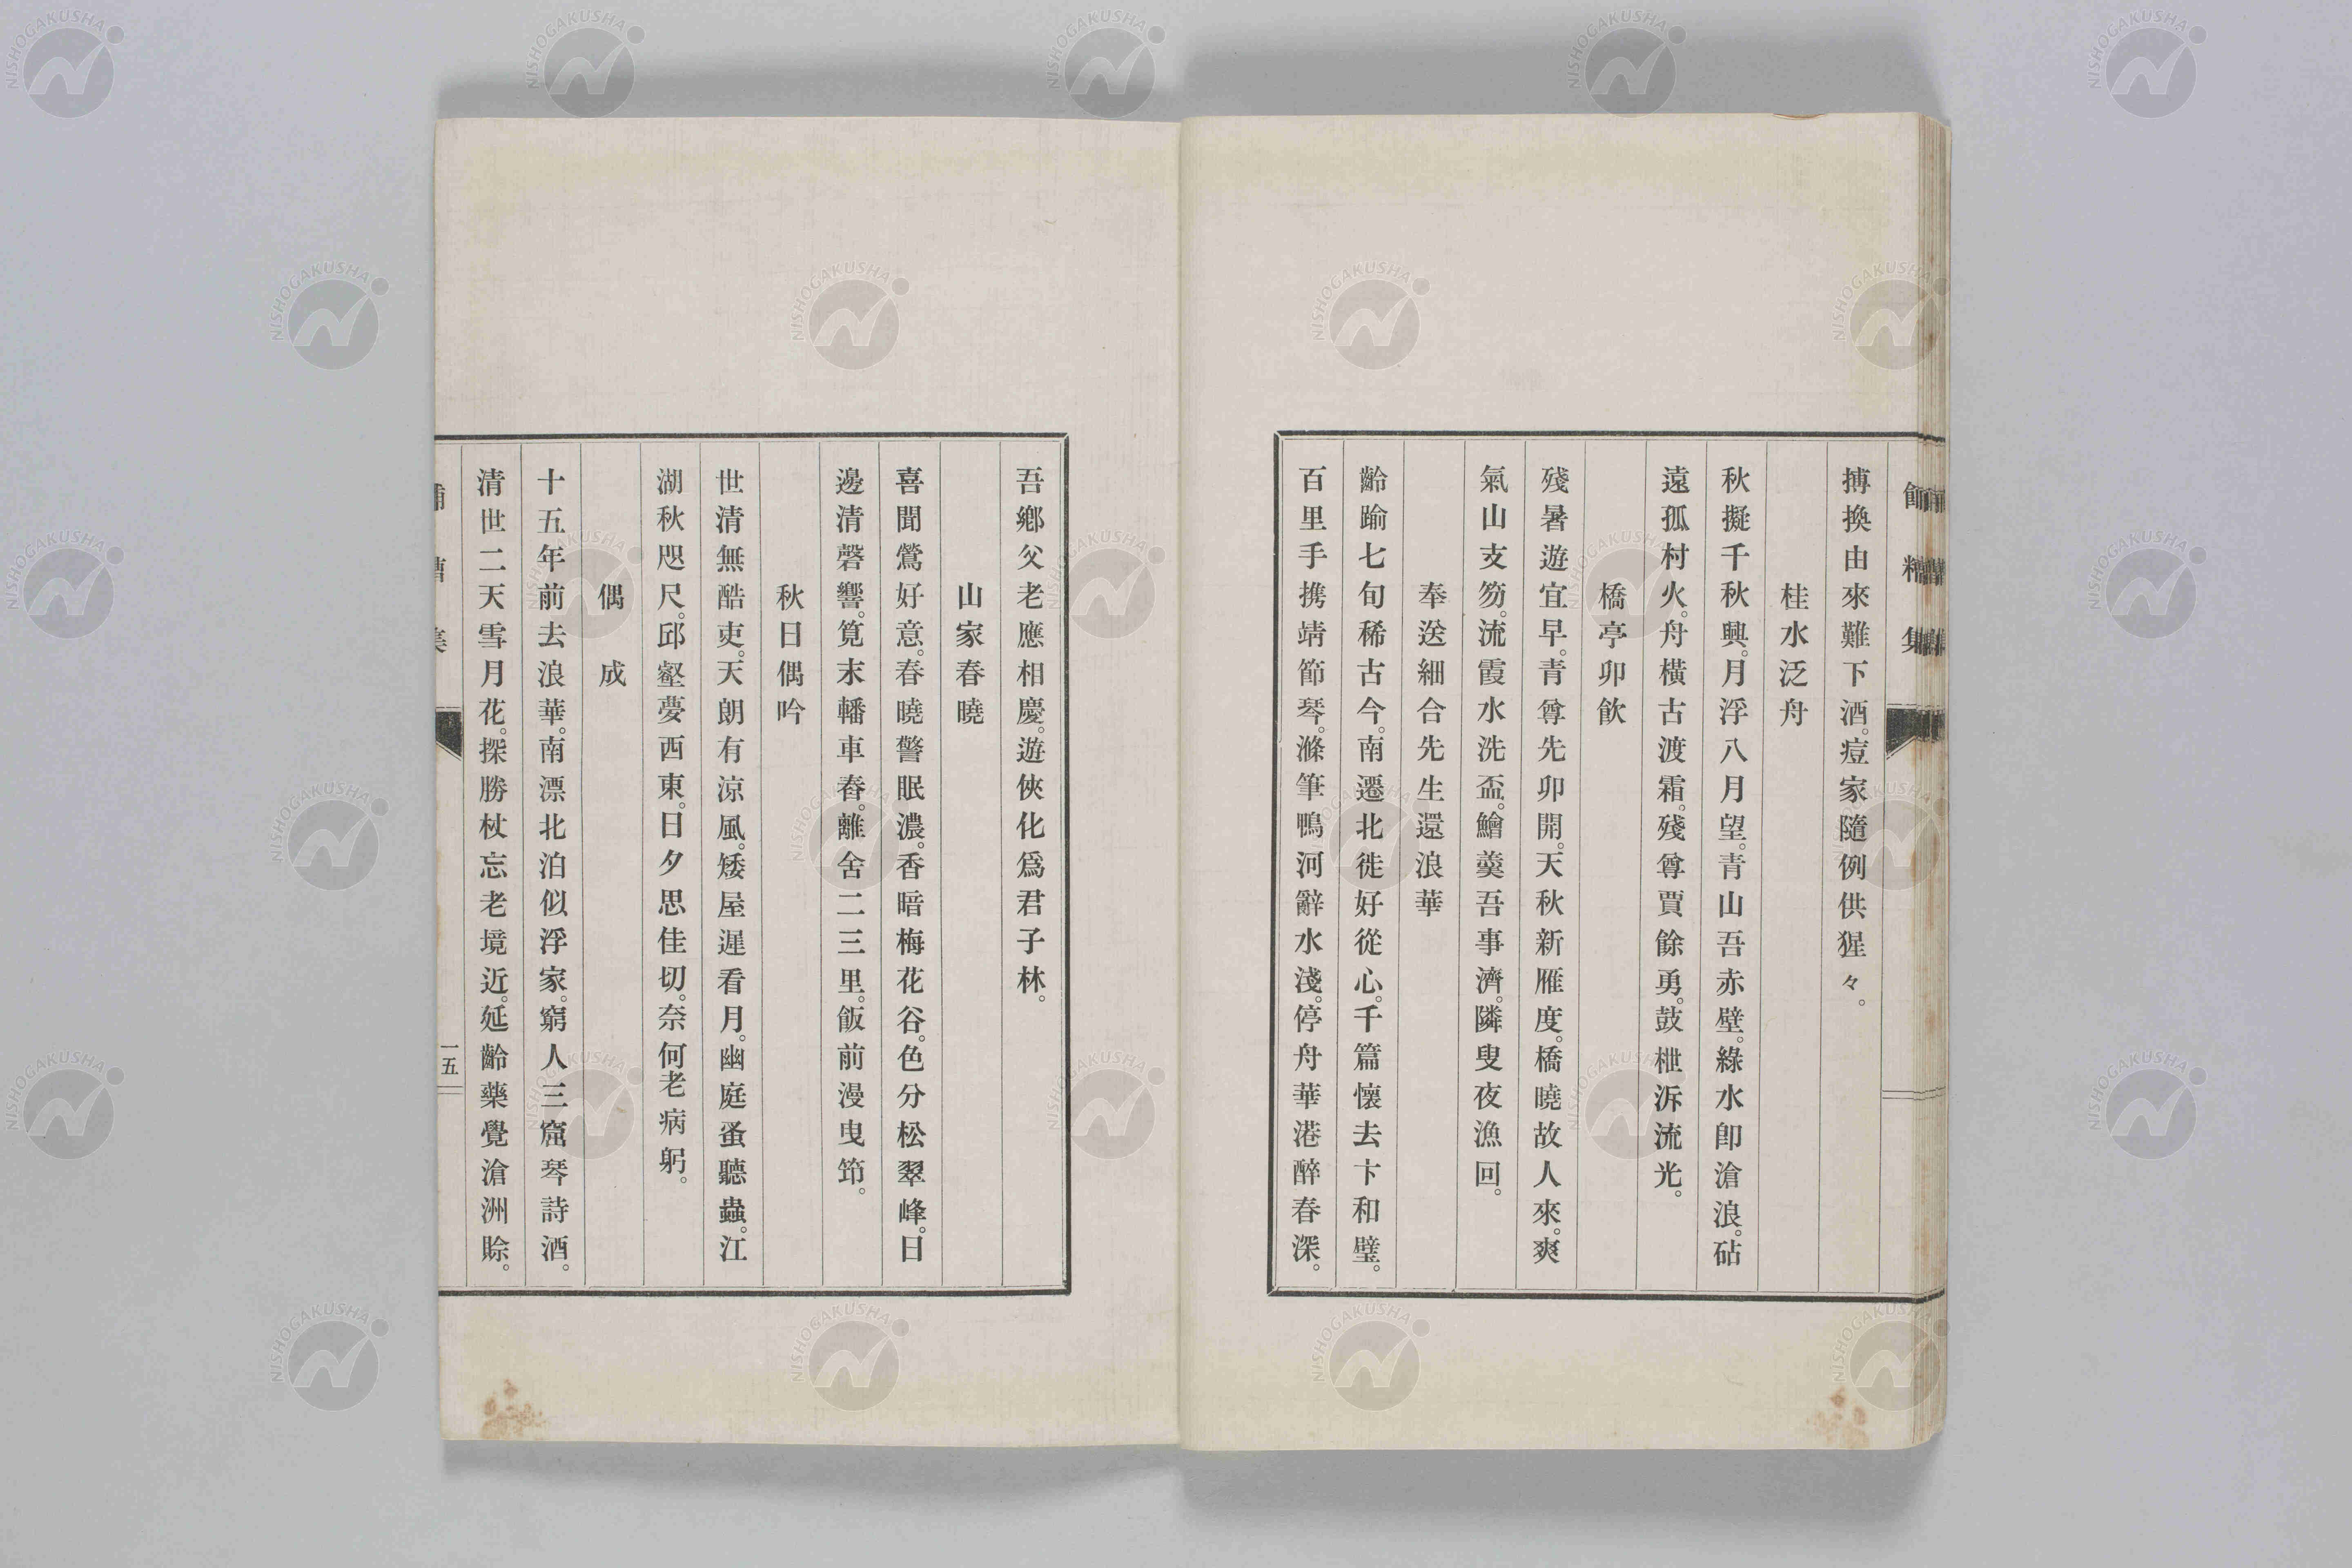 搏換由來難下酒。痘家隨例供猩々。
桂水泛舟
秋擬千秋興。月浮八月望。青山吾赤壁。綠水卽滄浪。砧
遠孤村火。舟橫古渡霜。殘尊賈餘勇。鼓枻泝流光。
橋亭卯飮
殘暑遊宜早。青尊先卯開。天秋新雁度。橋曉故人來。爽
氣山支笏。流霞水洗盃。鱠羹吾事濟。隣叟夜漁回。
奉送細合先生還浪華
齡踰七旬稀古今。南遷北徙好從心。千篇懷去卞和璧。
百里手携靖節琴。滌筆鴨河辭水淺。停舟華港醉春深。
吾鄕父老應相慶。遊俠化爲君子林。
山家春曉
喜聞鶯好意。春曉警眠濃。香暗梅花谷。色分松翠峰。日
邊清磬響。筧末轓車舂。離舍二三里。飯前漫曳筇。
秋日偶吟
世清無酷吏。天朗有涼風。矮屋遲看月。幽庭蚤聽蟲。江
湖秋咫尺。邱壑夢西東。日夕思佳切。奈何老病躬。
偶成
十五年前去浪華。南漂北泊似浮家。窮人三窟琴詩酒。
清世二天雪月花。探勝杖忘老境近。延齡藥覺滄洲賒。
一五
NISHOGAKUSHA